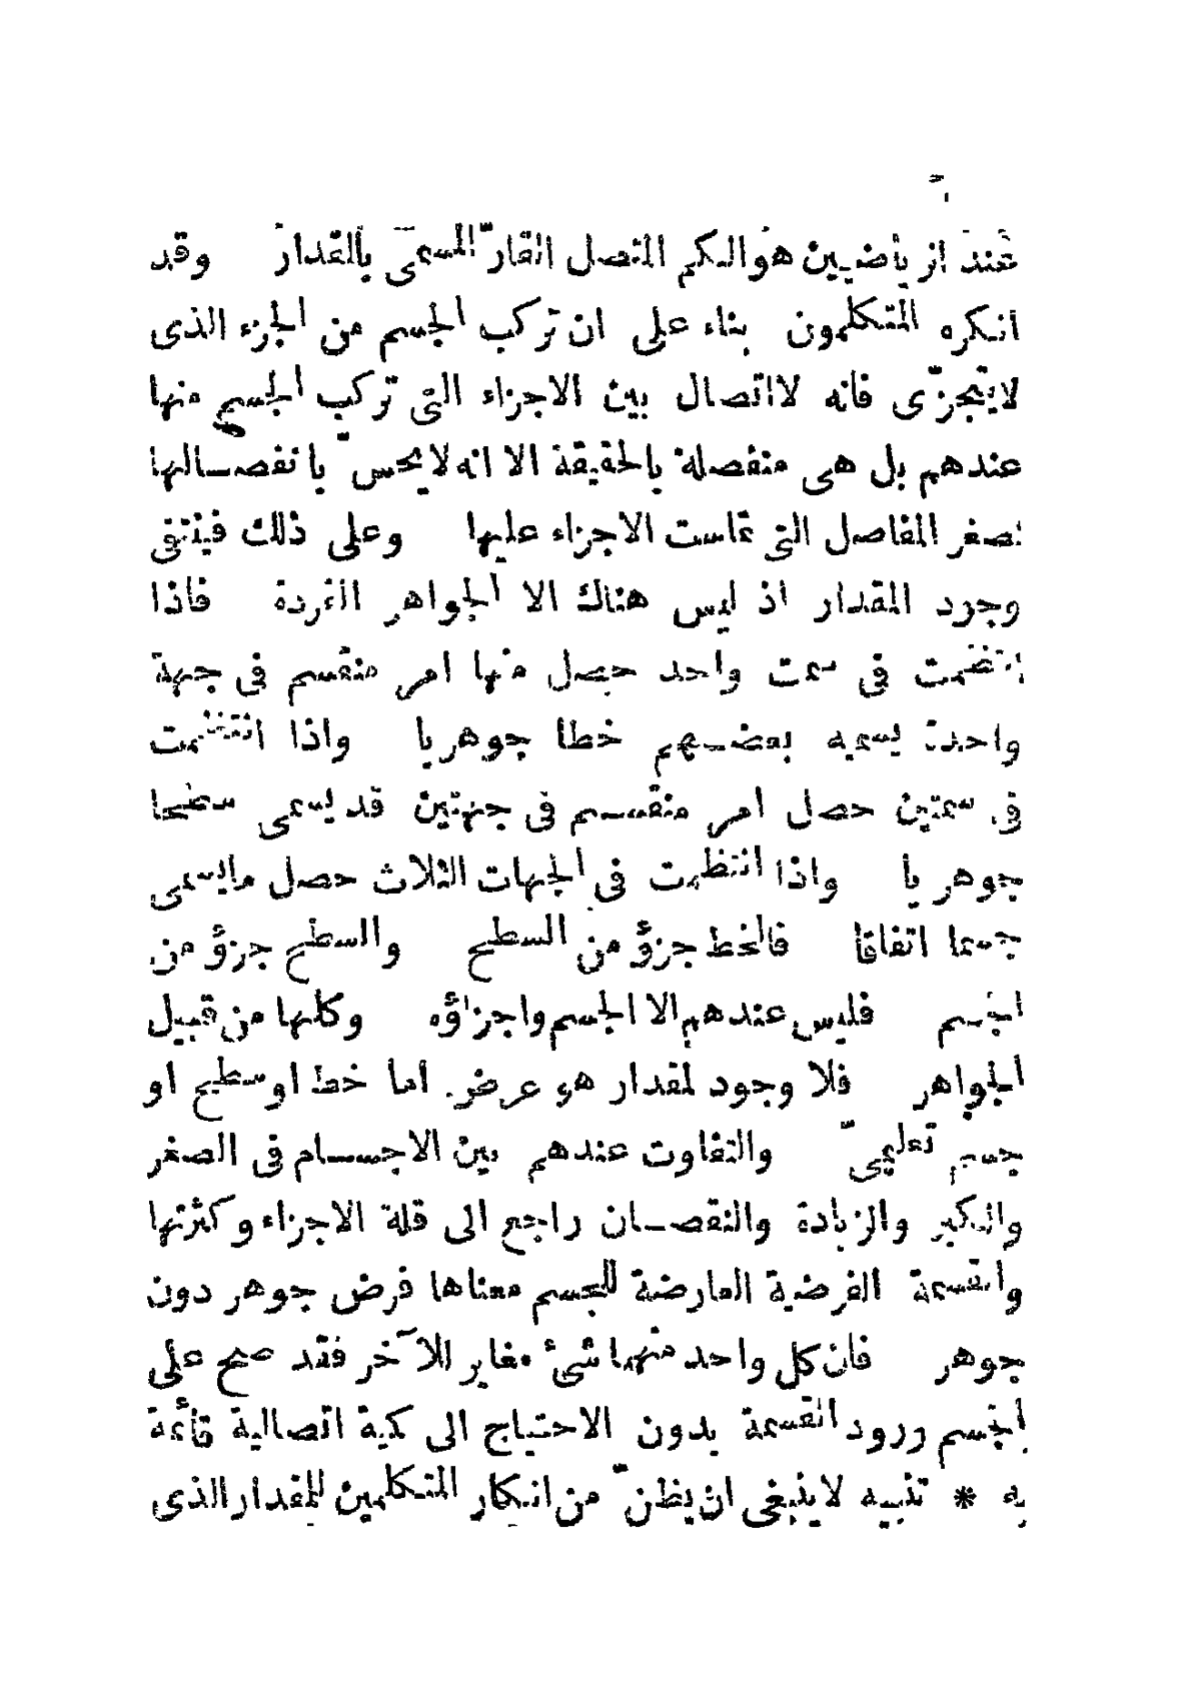 عند الرياضيين هو الكم المتصل القارّ المسمى بالمقدار وقد
انكره المتكلمون بناء على ان تركب الجسم من الجزء الذى
لايتجزّى فانه لااتصال بين الاجزاء التى تركب الجسم منها
عندهم بل هى منفصلة بالحقيقة الا انه لايحسّ بانفصالها
لصغر المفاصل التى تماست الاجزاء عليها وعلى ذلك فينتفى
وجود المقدار اذ ليس هناك الا الجواهر الفردة فاذا
انتظمت فى سمت واحد حصل منها امر منقسم فى جهة
واحدة يسميه بعضهم خطا جوهريا واذا انتظمت
فى سمتين حصل امر منقسم فى جهتين قد يسمى سطحا
جوهريا واذا انتظمت فى الجهات الثلاث حصل مايسمى
جسما اتفاقا فالخط جزؤ من السطح والسطح جزؤ من
الجسم فليس عندهم الا الجسم واجزاؤه وكلها من قبيل
الجواهر فلا وجود لمقدار هو عرض. اما خط او سطح او
جسم تعليمىّ والتفاوت عندهم بين الاجسام فى الصغر
والكبر والزيادة والنقصان راجع الى قلة الاجزاء وكثرتها
والقسمة الفرضية العارضة للجسم معناها فرض جوهر دون
جوهر فان كل واحد منهما شئ مغاير للآخر فقد صح على
الجسم ورود القسمة بدون الاحتياج الى كمية اتصالية قائمة
به * تنبيه لاينبغى ان يظنّ من انكار المتكلمين للمقدار الذى